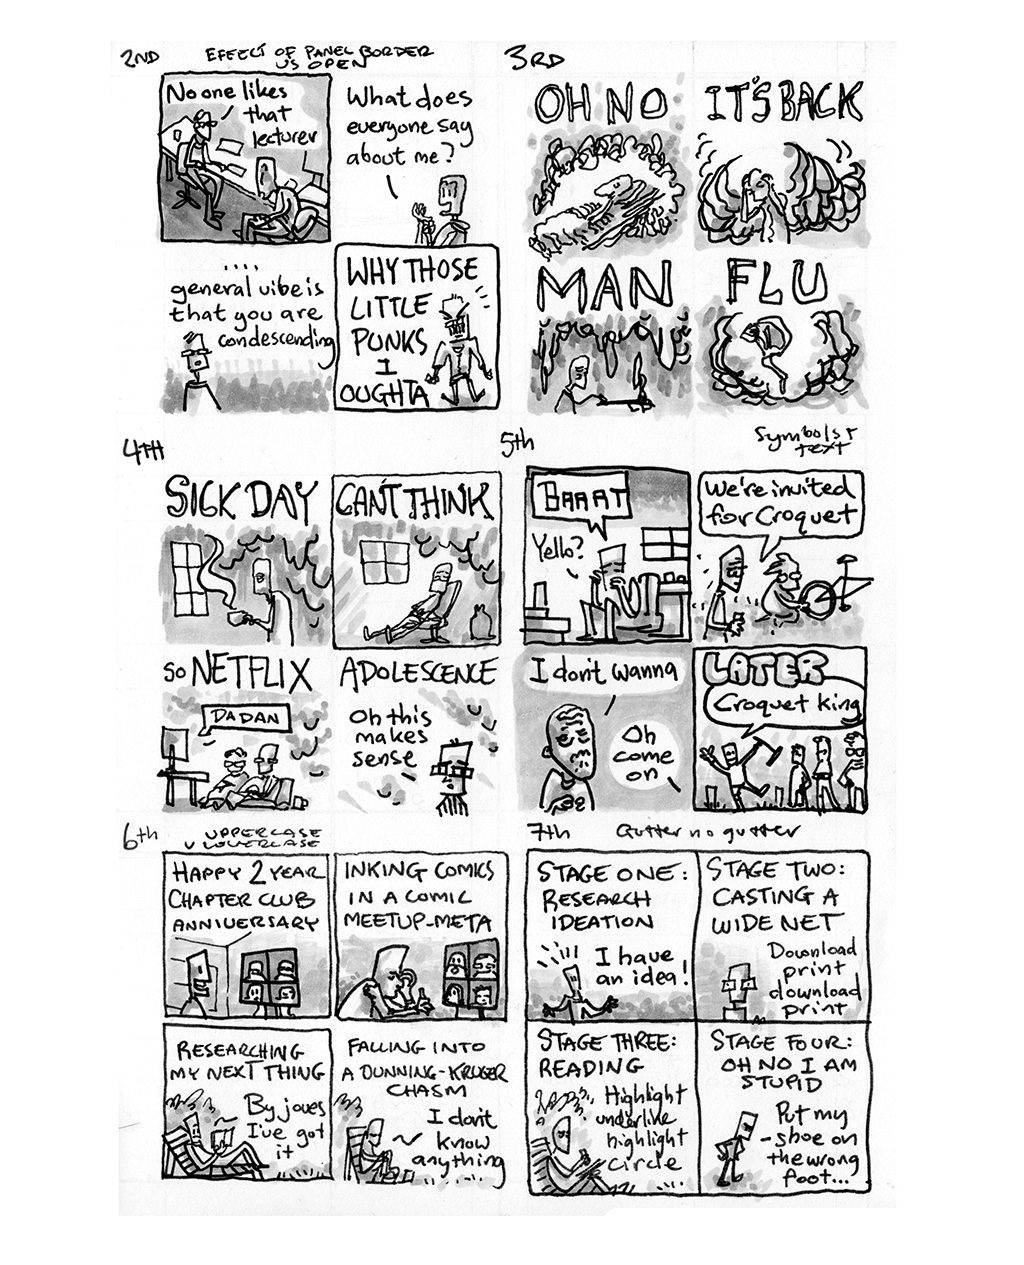 2ND
EFFECT OF PANEL BORDER
VS OPEN
No one likes
that
lecturer
What does
everyone say
about me?
....
general vibe is
that you are
condescending
WHY THOSE
LITTLE
PUNKS
I
OUGHTA
3RD
OH NO
IT'S BACK
MAN
FLU
4TH
SICK DAY
CAN'T THINK
SO NETFLIX
DADAN
ADOLESCENCE
Oh this
makes
sense
5th
Symbols +
text
BRAAT
Yello?
We're invited
for Croquet
I don't wanna
Oh
come
on
LATER
Croquet king
6th
UPPERCASE
V LOWERCASE
HAPPY 2 YEAR
CHAPTER CLUB
ANNIVERSARY
INKING COMICS
IN A COMIC
MEETUP-META
RESEARCHING
MY NEXT THING
By joves
I've got
it
FALLING INTO
A DUNNING-KRUGER
CHASM
I don't
know
anything
7th
Gutter no gutter
STAGE ONE:
RESEARCH
IDEATION
I have
an idea!
STAGE TWO:
CASTING A
WIDE NET
Download
print
download
print
STAGE THREE:
READING
Highlight
underlike
highlight
circle
STAGE FOUR:
OH NO I AM
STUPID
Put my
-shoe on
the wrong
foot...